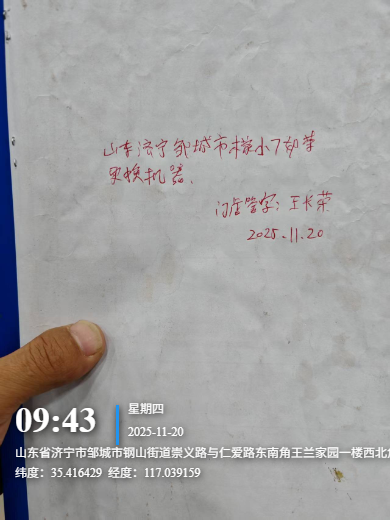 山东济宁邹城市
更换机器.
门店签字: 王长荣
2025.11.20
09:43
星期四
2025-11-20
山东省济宁市邹城市钢山街道崇义路与仁爱路东南角王兰家园一楼西北
纬度: 35.416429 经度: 117.039159